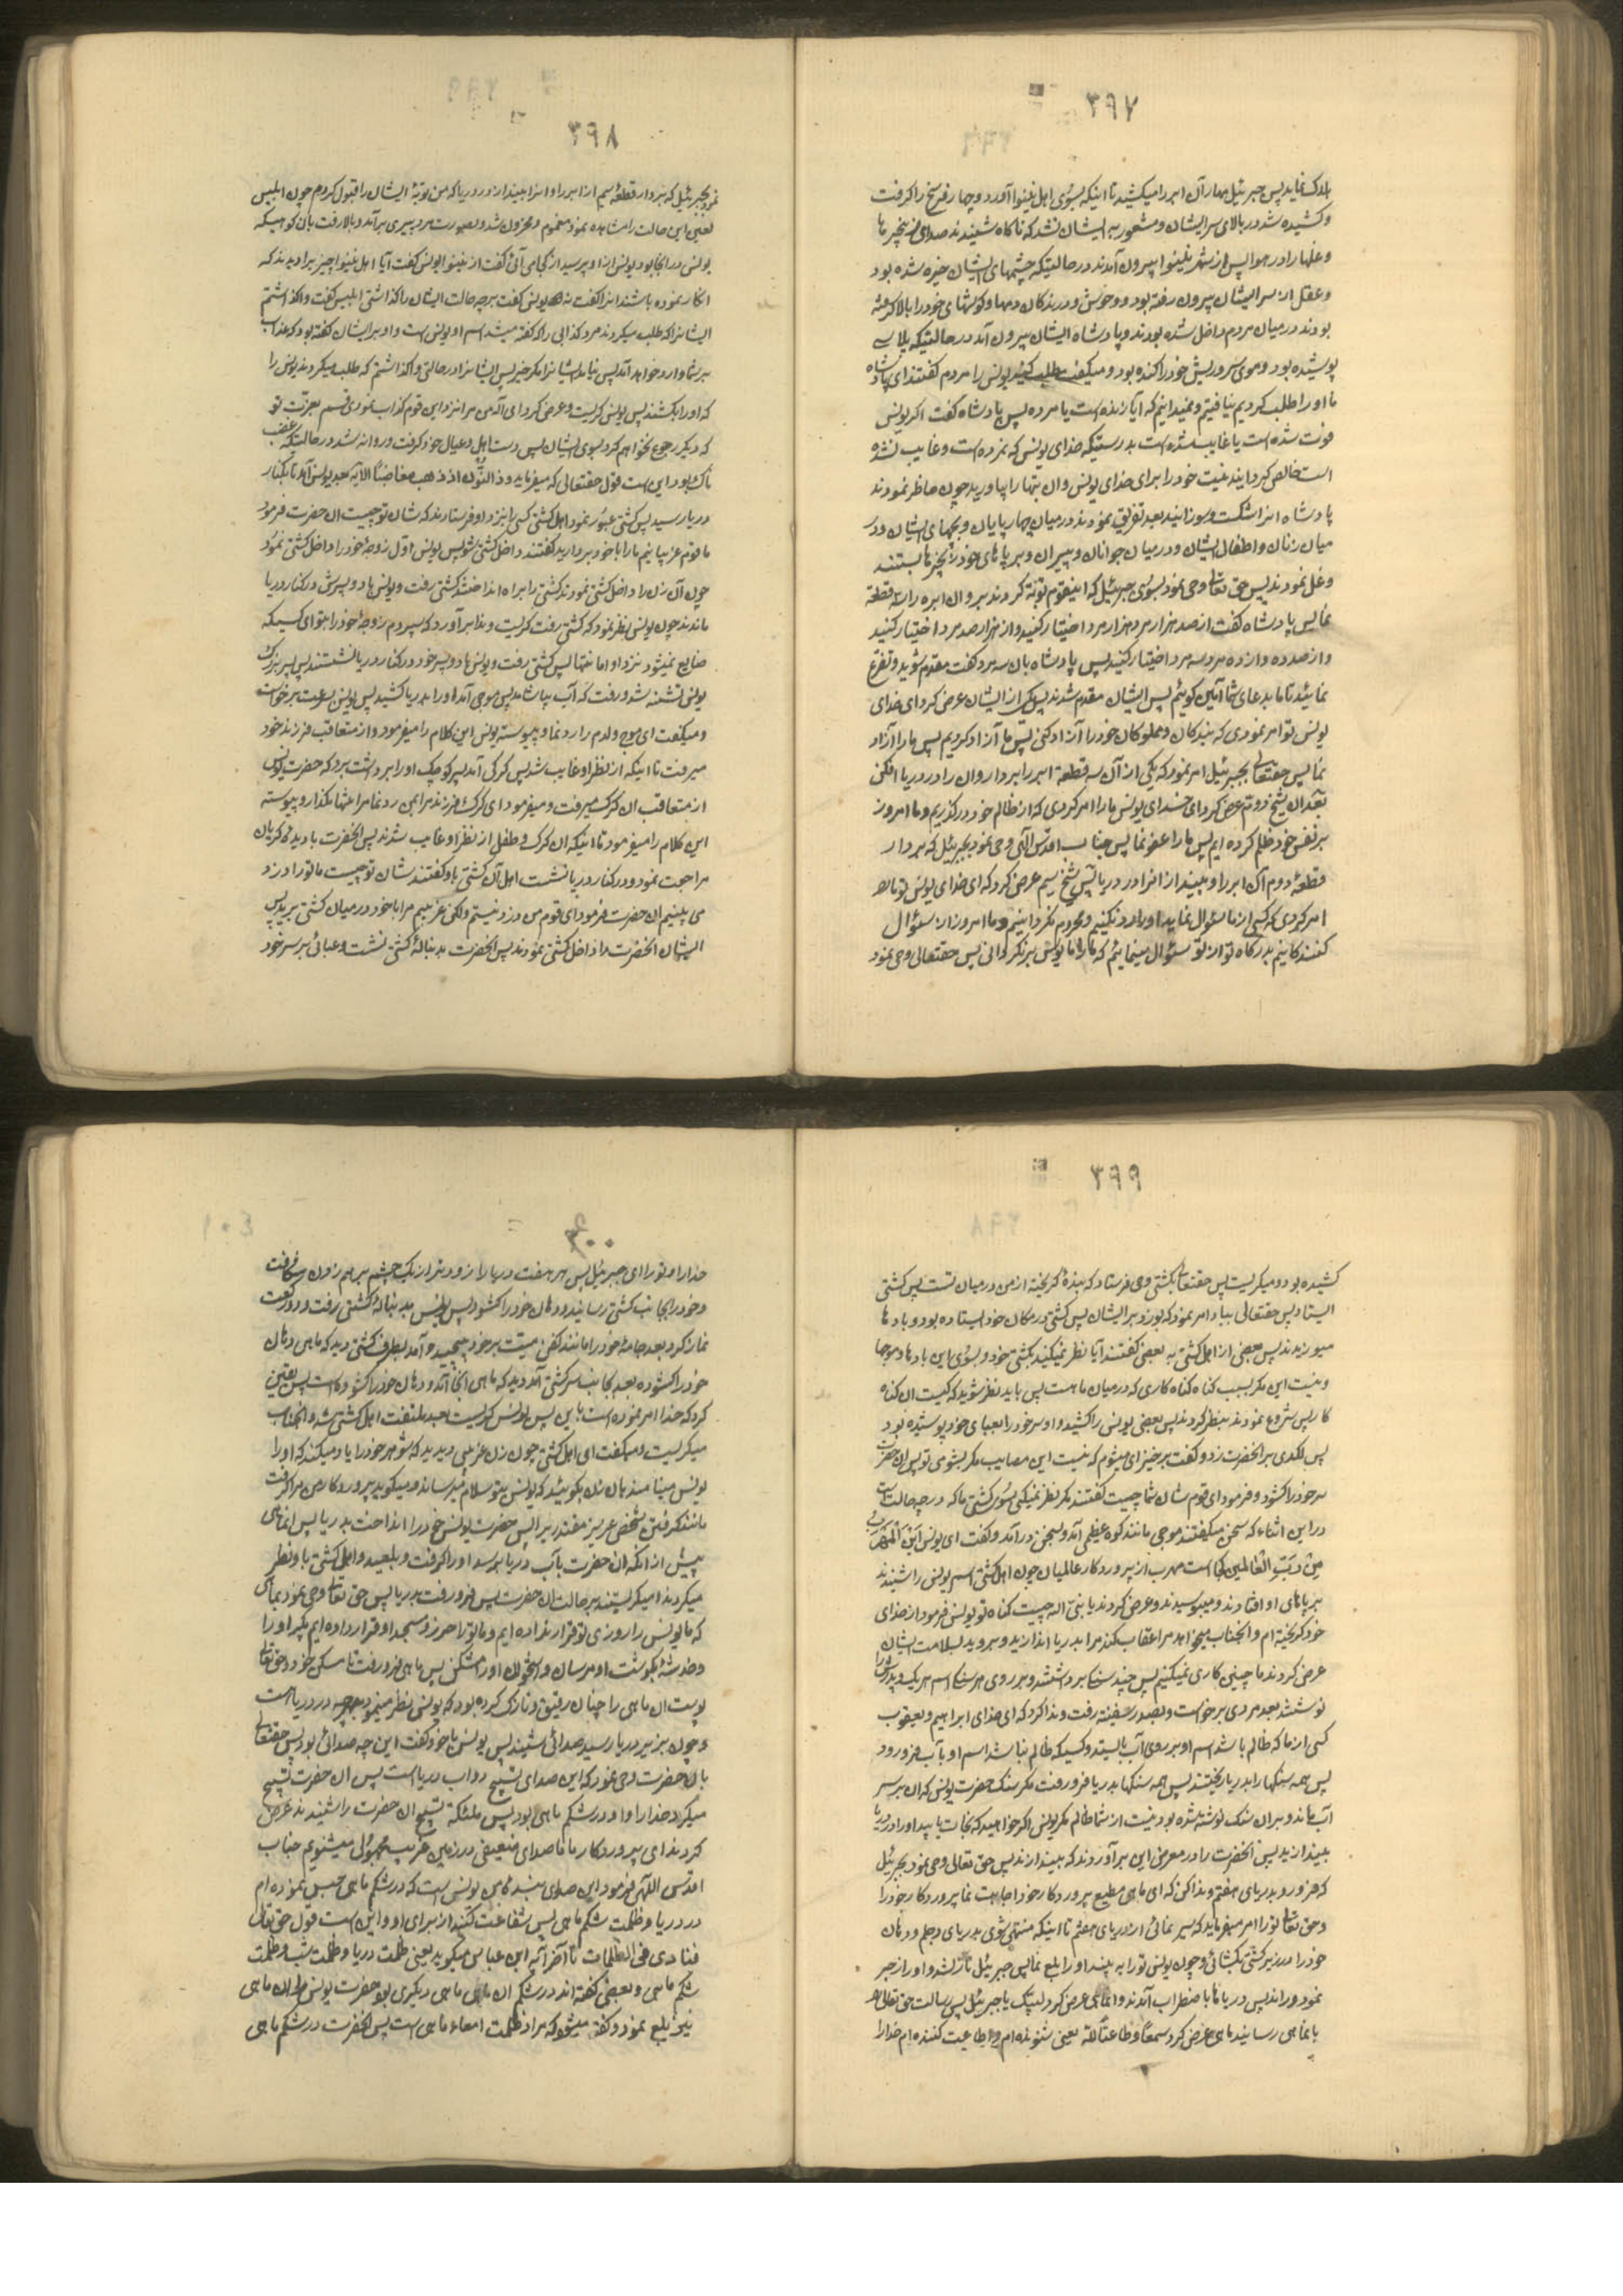 ۳۹۷
هلاک نماید پس جبرئیل مهار آن ابر را میکشید تا اینکه بسوی اهل نینوا آورد و چهار فرسخ را گرفت
و کشیده شد در بالای سر ایشان و مشعور به ایشان نشد که ناکاه شنیدند صدای زنجیرها
و غلها را در هوا پس از شهر نینوا بیرون آمدند در حالتیکه چشمهای ایشان خیره شده بود
و عقل از سر ایشان بیرون رفته بود و وحوش و درندکان دمها و کوشهای خود را بالا کرفته
بودند در میان مردم داخل شده بودند و پادشاه ایشان بیرون آمد در حالتیکه پلاس
پوشیده بود و موی سر و ریش خود را کنده بود و میکفت طلب کنید یونس را مردم کفتند ای پادشاه
ما او را طلب کردیم نیافتیم و نمیدانیم که آیا زنده است یا مرده پس پادشاه گفت اکر یونس
فوت شده است یا غایب شده است بدرستیکه خدای یونس که نمرده است و غایب نشده
است خالص کردانید نیت خود را برای خدای یونس و ان بتها را بیاورید چون حاظر نمودند
پادشاه انها را شکست و سوزانید بعد تفریق نمودند در میان چهارپایان و بچهای ایشان و در
میان زنان و اطفال ایشان و در میان جوانان و پیران و بر پاهای خود زنجیرها بستند
و غل نمودند پس حق تعالی وحی نمود بسوی جبرئیل که اینقوم توبه کردند برو ان ابر را سه قطعه
نما پس پادشاه کفت از صد هزار مرد هزار مرد اختیار کنید و از هزار صد مرد اختیار کنید
و از صد ده و از ده مرد سه مرد اختیار کنید پس پادشاه بان سه مرد کفت مقدم شوید و تضرع
نمائید تا ما بدعای شما آمین کوئیم پس ایشان مقدم شدند پس یکی از ایشان عرض کرد ای خدای
یونس تو امر نمودی که بندکان و مملوکان خود را آزاد کنی پس ما آزاد کردیم پس ما را آزاد
نما پس حقتعالی بجبرئیل امر نمود که یکی از آن سه قطعه ابر را بردار و ان را در دریا افکن
بعد ان شیخ دوم عرض کرد ای خدای یونس ما را امر کردی که از ظالم خود درکذریم و ما امروز
بر نفس خود ظلم کرده ایم پس ما را عفو نما پس جناب اقدس الآهی وحی نمود بجبرئیل که بردار
قطعهٔ دوم آن ابر را و بینداز انرا در دریا پس شیخ سیم عرض کرد که ای خدای یونس تو ما را
امر کردی که کسی از ما سؤال نماید او را رد نکنیم و محروم نکردانیم و ما امروز از سؤال
کنندکانیم بدرکاه تو از تو سؤال مینمائیم که ما را مایوس برنکردانی پس حقتعالی وحی نمود
۳۹۸
نمود بجبرئیل که بردار قطعهٔ سیم از ابر را و انرا بینداز در دریا که من توبهٔ ایشان را قبول کردم چون ابلیس
لعین این حالت را مشاهده نمود مغموم و محزون شد و بصورت مرد پیری برآمد و بالا رفت بان کو میکه
یونس در انجا بود یونس از او پرسید از کجا می آئی کفت از نینوا یونس کفت آیا اهل نینوا چیز بر ا دیدند که
انکار نموده باشند انرا کفت نه یونس کفت برچه حالت ایشان را کذاشتی ابلیس کفت واکذاشتم
ایشانرا که طلب میکردند مرد کذابی را که کفته میشد اسم او یونس است و او بر ایشان کفته بود که عذاب
بر شما وارد خواهد آمد پس نیامد ایشانرا مکر خیر پس ایشانرا در حالتی واکذاشتم که طلب میکردند یونس را
که او را بکشند پس یونس کریست و عرض کرد ای آله من مرا نزد این قوم کذاب نمودی قسم بعزت تو
که دیکر رجوع نخواهم کرد بسوی ایشان پس دست اهل و عیال خود کرفت و روانه شد در حالتیکه غضب
ناک بود این است قول حقتعالی که میفرماید و ذا النون اذ ذهب مغاضبًا الآیه بعد یونس آمد تا بکنار
دریا رسید پس کشتی عبور نمود اهل کشتی کسی را نزد او فرستادند که شان تو چیست ان حضرت فرمود
ما قوم غریبانیم ما را با خود بردارید کفتند داخل کشتی شو پس یونس اول زوجهٔ خود را داخل کشتی نمود
چون آن زن را داخل کشتی نمودند کشتی را براه انداختند کشتی رفت و یونس با دو پسرش در کنار دریا
ماندند چون یونس نظر نمود که کشتی رفت کریست و ندا برآورد که سپردم زوجهٔ خود را بتو ای کسیکه
ضایع نمیشود نزد او امانتها پس کشتی رفت و یونس با دو پسر خود در کنار دریا نشستند پس پسر بزرک
یونس تشنه شد و رفت که آب بیاشامد پس موجی آمد او را بدریا کشید پس یونس بسرعت برخواست
و میکفت ای موج ولدم را رد نما و پیوسته یونس این کلام را میفرمود و از متعاقب فرزند خود
میرفت تا اینکه از نظر او غایب شد پس کرکی آمد پسر کوچک او را برداشت برد که حضرت یونس
از متعاقب ان کرک میرفت و میفرمود ای کرک فرزندم را بمن رد نما مرا تنها مکذار و پیوسته
این کلام را میفرمود تا اینکه ان کرک و طفل از نظر او غایب شدند پس آنحضرت با دیدهٔ کریان
مراجعت نمود و در کنار دریا نشست اهل آن کشتی باو کفتند شان تو چیست ما تو را دزد
می بینیم ان حضرت فرمود ای قوم من دزد نیستم ولکن غریبم مرا با خود در میان کشتی برید پس
ایشان آنحضرت را داخل کشتی نمودند پس آنحضرت بدنبالهٔ کشتی نشست و عبائی بر سر خود
۳۹۹
کشیده بود و میکریست پس حقتعالی بکشتی وحی فرستاد که بندهٔ کریخته از من در میان تست پس کشتی
ایستاد پس حقتعالی بباد امر نمود که بوزد بر ایشان پس کشتی در مکان خود ایستاده بود و بادها
میوزیدند پس بعضی از اهل کشتی به بعضی کفتند آیا نظر نمیکنید بکشتی خود و بسوی این بادها و موجها
و نیست این مکر بسبب کناه کناه کاری که در میان ما هست پس باید نظر شوید که کیست ان کناه
کار پس شروع نمودند بنظر کردند پس بعضی یونس را کشید و او سر خود را بعبای خود پوشیده بود
پس لکدی بر آنحضرت زد و کفت برخیز ای میشوم که نیست این مصایب مکر بشومی تو پس ان حضرت
سر خود را کشود و فرمود ای قوم شان شما چیست کفتند مکر نظر نمیکنی بسوی کشتی ما که در چه حالت است
در این اثناء که سخن میکفتند موجی مانند کوه عظیمی آمد و بسخن درآمد و کفت ای یونس این المهرب
من رب العالمین کجا است مهرب از پروردکار عالمیان چون اهل کشتی اسم یونس را شنیدند
بر پاهای او افتادند و میبوسیدند و عرض کردند یا نبی اله چیست کناه تو یونس فرمود از خدای
خود کریخته ام و انجناب میخواهد مرا عقاب کند مرا بدریا اندازید و بروید بسلامت ایشان
عرض کردند ما چنین کاری نمیکنیم پس چند سنک برداشتند و بر روی هر سنک اسم هر یک و پدرش را
نوشتند بعد مردی برخواست و بصدر سفینه رفت و ندا کرد که ای خدای ابراهیم و یعقوب
کسی از ما که ظالم باشد اسم او بر روی آب بایستد و کسیکه ظالم نباشد اسم او بآب فرو رود
پس همه سنکها را بدریا ریختند پس همه سنکها بدریا فرو رفت مکر سنک حضرت یونس که ان بر سر
آب ماند و بران سنک نوشته شده بود نیست از شما ظالم مکر یونس اکر خواهید که نجات یابید او را در دریا
بیندازید پس آنحضرت را در معرض این برآوردند که بیندازند پس حق تعالی وحی نمود بجبرئیل
که فرو رو بدریای هفتم و ندا کن که ای ماهی مطیع پروردکار خود اجابت نما پروردکار خود را
و حق تعالی تو را امر میفرماید که سیر نمائی از دریای هفتم تا اینکه منتهی شوی بدریای دجله و دهان
خود را در زیر کشتی بکشائی و چون یونس تو را به بیند او را بلع نما پس جبرئیل نازل شد و او را زجر
نمود و راند پس دریاها باضطراب آمدند و انماهی عرض کرد لبیک یا جبرئیل پس رسالت حق تعالی را
بانماهی رسانید ماهی عرض کرد سمعًا و طاعتًا لله یعنی شنونده ام و اطاعت کننده ام خدا را
۴۰۰
خدا را و تو را ای جبرئیل پس هر هفت دریا را زودتر از یک چشم برهم زدن شکافت
و خود را بجانب کشتی رسانید و دهان خود را کشود پس یونس بدنبالهٔ کشتی رفت و دو رکعت
نماز کرد بعد جامهٔ خود را مانند کفن میت بر خود پیچید و آمد بطرف کشتی دید که ماهی دهان
خود را کشوده بعد بجانب سر کشتی آمد دید که ماهی انجا آمد و دهان خود را کشوده است پس یقین
کرد که خدا امر نموده است باین پس یونس کریست بعد ملتفت اهل کشتی شد و انجناب
میکریست و میکفت ای اهل کشتی چون زن غریبی دیدید که شوهر خود را یاد میکند که او را
یونس مینامند بان زن بکوئید که یونس بتو سلام میرساند و میکوید پروردکار من مرا کرفت
مانند کرفتن شخص عزیز مقتدر پس حضرت یونس خود را انداخت بدریا پس انماهی
پیش از انکه ان حضرت بآب دریا برسد او را کرفت و بلعید و اهل کشتی باو نظر
میکردند و میکریستند بر حالت ان حضرت پس فرو رفت بدریا پس حق تعالی وحی نمود بماهی
که ما یونس را روزی تو قرار نداده ایم و ما تو را حرز و مسجد او قرار داده ایم بکیر او را
و خدشه بکوشت او مرسان و استخوان او را مشکن پس ماهی فرو رفت تا مسکن خود و حق تعالی
پوست ان ماهی را چنان رقیق و نازک کرده بود که یونس نظر مینمود بهرچه در دریا است
و چون بزیر دریا رسید صدائی شنید پس یونس با خود کفت این چه صدائی بود پس حقتعالی
بان حضرت وحی نمود که این صدای تسبیح دواب دریا است پس ان حضرت تسبیح
میکرد خدا را و او در شکم ماهی بود پس ملئکه تسبیح ان حضرت را شنیدند عرض
کردند ای پروردکار ما ما صدای ضعیفی در زمین غریب مجهولی میشنویم جناب
اقدس اللهی فرمود این صدای بنده من یونس است که در شکم ماهی حبس نموده ام
در دریا و ظلمت شکم ماهی پس شفاعت کنند از برای او و این است قول حق تعالی
فنادی فی الظلمات تا آخر آیه ابن عباس میکوید یعنی ظلمت دریا و ظلمت شب و ظلمت
شکم ماهی و بعضی کفته اند در شکم ان ماهی ماهی دیکری بود حضرت یونس را ان ماهی
نیز بلع نمود و کفته میشود که مراد ظلمت امعاء ماهی است پس آنحضرت در شکم ماهی